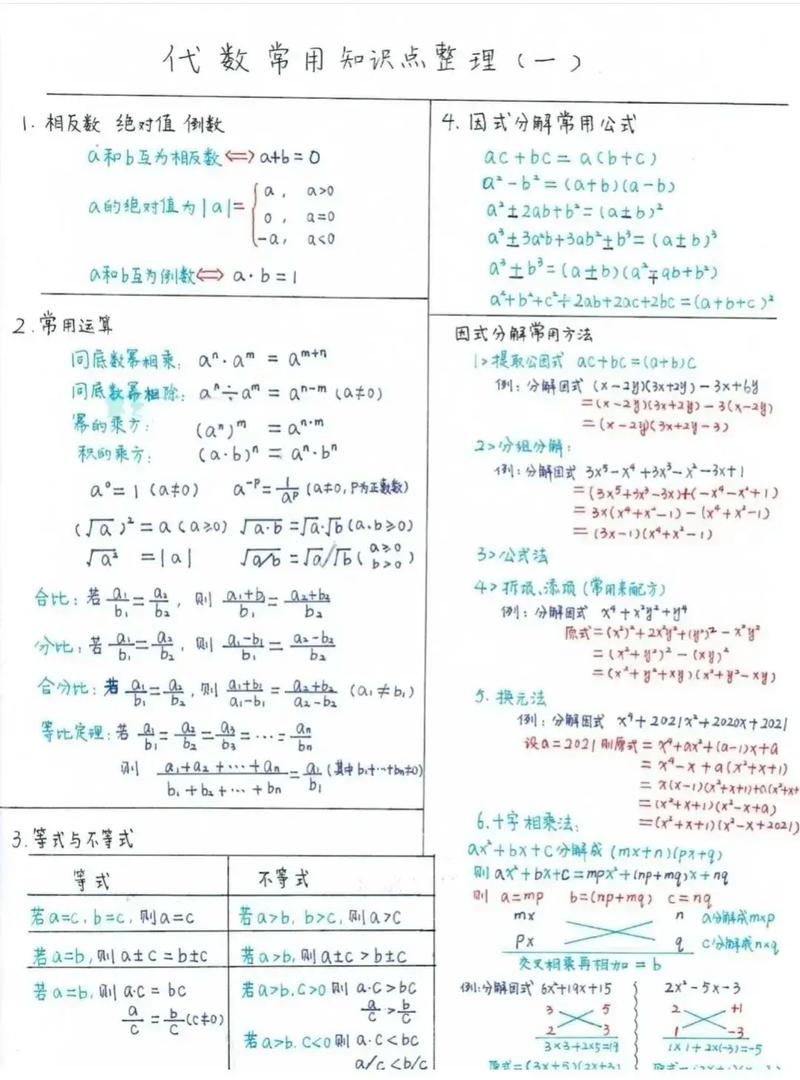 代数常用知识点整理(一)
1. 相反数 绝对值 倒数
a和b互为相反数⟺a+b=0
a的绝对值为|a|={a, a>0
0, a=0
-a, a<0
a和b互为倒数⟺ a·b=1
2.常用运算
同底数幂相乘: aⁿ·aᵐ = aᵐ⁺ⁿ
同底数幂相除: aⁿ÷aᵐ = aⁿ⁻ᵐ (a≠0)
幂的乘方: (aⁿ)ᵐ = aⁿ·ᵐ
积的乘方: (a·b)ⁿ = aⁿ·bⁿ
a⁰=1 (a≠0) a⁻ᴾ=1/aᴾ (a≠0, P为正数)
(√a)²=a (a≥0) √a·b=√a·√b (a.b≥0)
√a² =|a| √a/b=√a/√b (a≥0 b>0)
合比: 若 a₁/b₁=a₂/b₂, 则 a₁+b₁/b₁=a₂+b₂/b₂
分比: 若 a₁/b₁=a₂/b₂, 则 a₁-b₁/b₁=a₂-b₂/b₂
合分比: 若 a₁/b₁=a₂/b₂, 则 a₁+b₁/a₁-b₁=a₂+b₂/a₂-b₂ (a₁≠b₁)
等比定理: 若 a₁/b₁=a₂/b₂=a₃/b₃=⋯=aₙ/bₙ
则 a₁+a₂+⋯+aₙ/b₁+b₂+⋯+bₙ=a₁/b₁ (其中b₁+⋯+bₙ≠0)
3.等式与不等式
等式 不等式
若a=c, b=c, 则a=c 若a>b, b>c, 则a>c
若a=b, 则a±c=b±c 若a>b, 则a±c>b±c
若a=b, 则a·c=bc 若a>b.c>0 则 a·c>bc
a/c=b/c(c≠0) a/c>b/c
若a>b.c<0则 a·c<bc
a/c<b/c
4. 因式分解常用公式
ac+bc=a(b+c)
a²-b²=(a+b)(a-b)
a²±2ab+b²=(a±b)²
a³±3a²b+3ab²±b³=(a±b)³
a³±b³=(a±b)(a²∓ab+b²)
a²+b²+c²+2ab+2ac+2bc=(a+b+c)²
因式分解常用方法
1>提取公因式 ac+bc=(a+b)c
例: 分解因式 (x-2y)(3x+2y)-3x+6y
=(x-2y)(3x+2y)-3(x-2y)
=(x-2y)(3x+2y-3)
2>分组分解:
例: 分解因式 3x⁵-x⁴+3x³-x²-3x+1
=(3x⁵+3x³-3x)+(-x⁴-x²+1)
=3x(x⁴+x²-1)-(x⁴+x²-1)
=(3x-1)(x⁴+x²-1)
3>公式法
4>拆项、添项 (常用来配方)
例: 分解因式 x⁴+x²y²+y⁴
原式=(x²)²+2x²y²+(y²)²-x²y²
=(x²+y²)²-(xy)²
=(x²+y²+xy)(x²+y²-xy)
5. 换元法
例: 分解因式 x⁴+2021x²+2020x+2021
设a=2021则原式=x⁴+ax²+(a-1)x+a
=x⁴-x+a(x²+x+1)
=x(x-1)(x²+x+1)+a(x²+x+
=(x²+x+1)(x²-x+a)
=(x²+x+1)(x²-x+2021)
6.十字相乘法:
ax²+bx+c分解成 (mx+n)(px+q)
则ax²+bx+c=mpx²+(np+mq)x+nq
则 a=mp b=(np+mq) c=nq
mx n a分解成m×p
px q c分解成n×q
交叉相乘再相加=b
例:分解因式 6x²+19x+15 2x²-5x-3
3 5 2 +1
2 3 1 -3
3×3+2×5=19 1×1+2×(-3)=-5
原式=(3x+5)(2x+3)